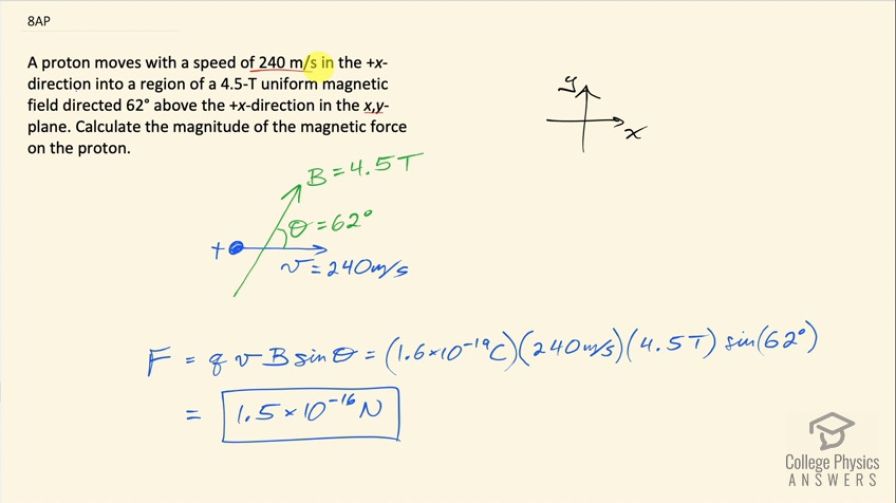 8AP
A proton moves with a speed of 240 m/s in the +x-
direction into a region of a 4.5-T uniform magnetic
field directed 62° above the +x-direction in the x,y-
plane. Calculate the magnitude of the magnetic force
on the proton.
y
x
B = 4.5 T
θ = 62°
+
v = 240 m/s
F = q v B sin θ = (1.6×10⁻¹⁹C)(240 m/s)(4.5 T) sin(62°)
= 1.5×10⁻¹⁶ N
College Physics
ANSWERS